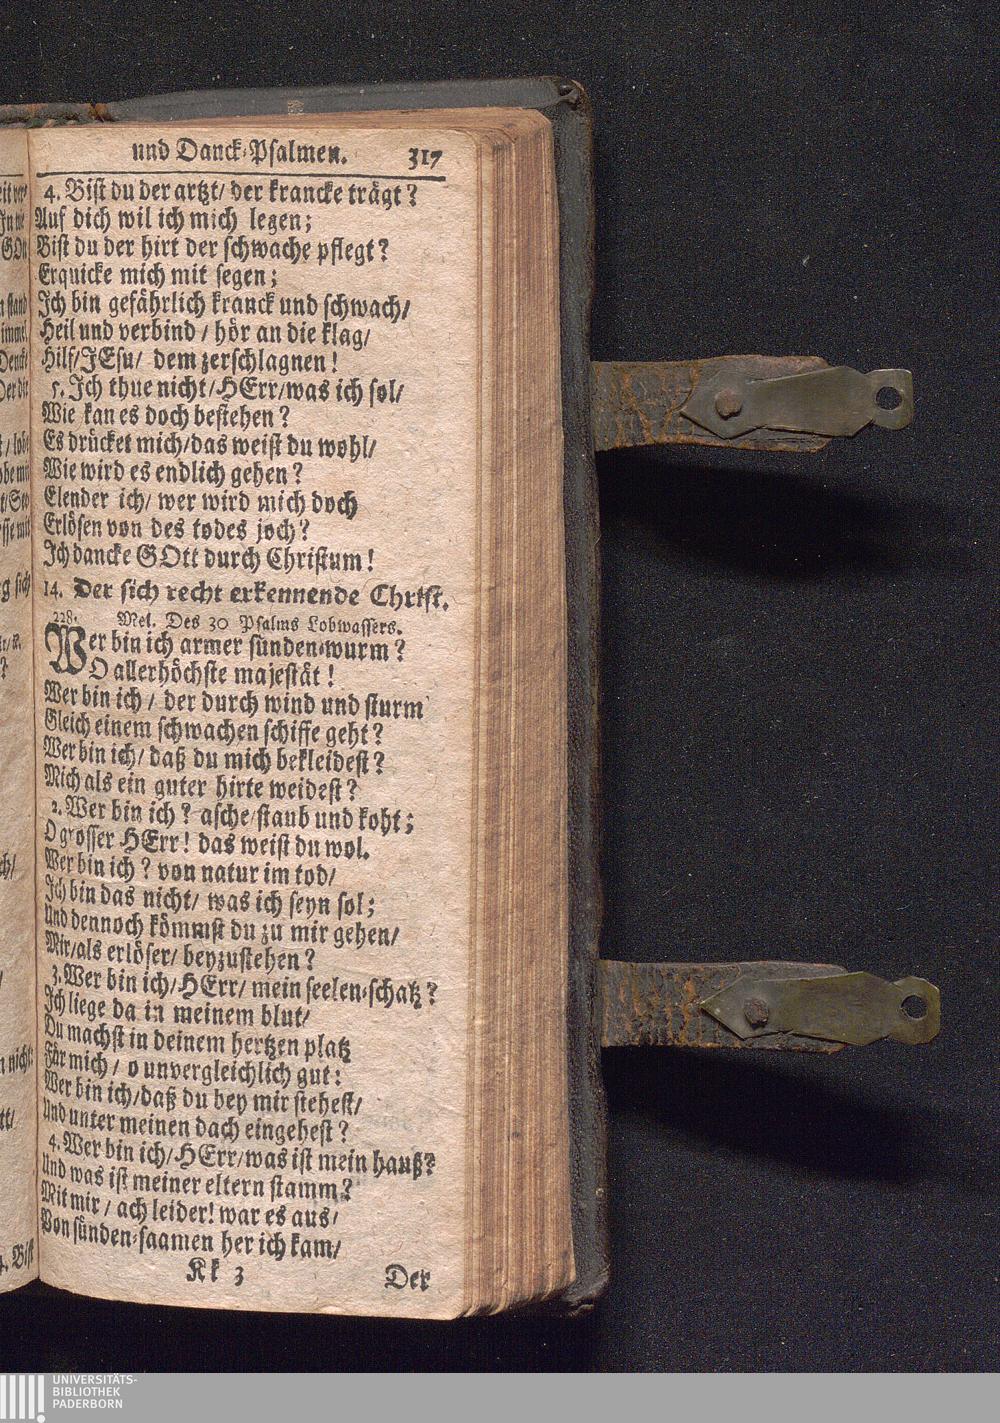 und Danck-Psalmen. 317
4. Bist du der artzt/ der krancke trägt?
Auf dich wil ich mich legen;
Bist du der hirt der schwache pflegt?
Erquicke mich mit segen;
Ich bin gefährlich kranck und schwach/
Heil und verbind/ hör an die klag/
Hilf/JEsu/ dem zerschlagnen!
5. Ich thue nicht/HErr/was ich sol/
Wie kan es doch bestehen?
Es drücket mich/das weist du wohl/
Wie wird es endlich gehen?
Elender ich/ wer wird mich doch
Erlösen von des todes joch?
Ich dancke GOtt durch Christum!
14. Der sich recht erkennende Christ.
228. Mel. Des 30 Psalms Lobwassers.
Wer bin ich armer sünden-wurm?
O allerhöchste majestät!
Wer bin ich/ der durch wind und sturm
Gleich einem schwachen schiffe geht?
Wer bin ich/ daß du mich bekleidest?
Mich als ein guter hirte weidest?
2. Wer bin ich? asche/staub und koht;
O grosser HErr! das weist du wol.
Wer bin ich? von natur im tod/
Ich bin das nicht/ was ich seyn sol;
Und dennoch kömmst du zu mir gehen/
Mir/als erlöser/ beyzustehen?
3. Wer bin ich/HErr/ mein seelen-schatz?
Ich liege da in meinem blut/
Du machst in deinem hertzen platz
Für mich/ o unvergleichlich gut:
Wer bin ich/daß du bey mir stehest/
Und unter meinen dach eingehest?
4. Wer bin ich/HErr/was ist mein hauß?
Und was ist meiner eltern stamm?
Mit mir/ ach leider! war es aus/
Von sünden-saamen her ich kam/
Kk 3 Der
4. Bist
UNIVERSITÄTS-
BIBLIOTHEK
PADERBORN